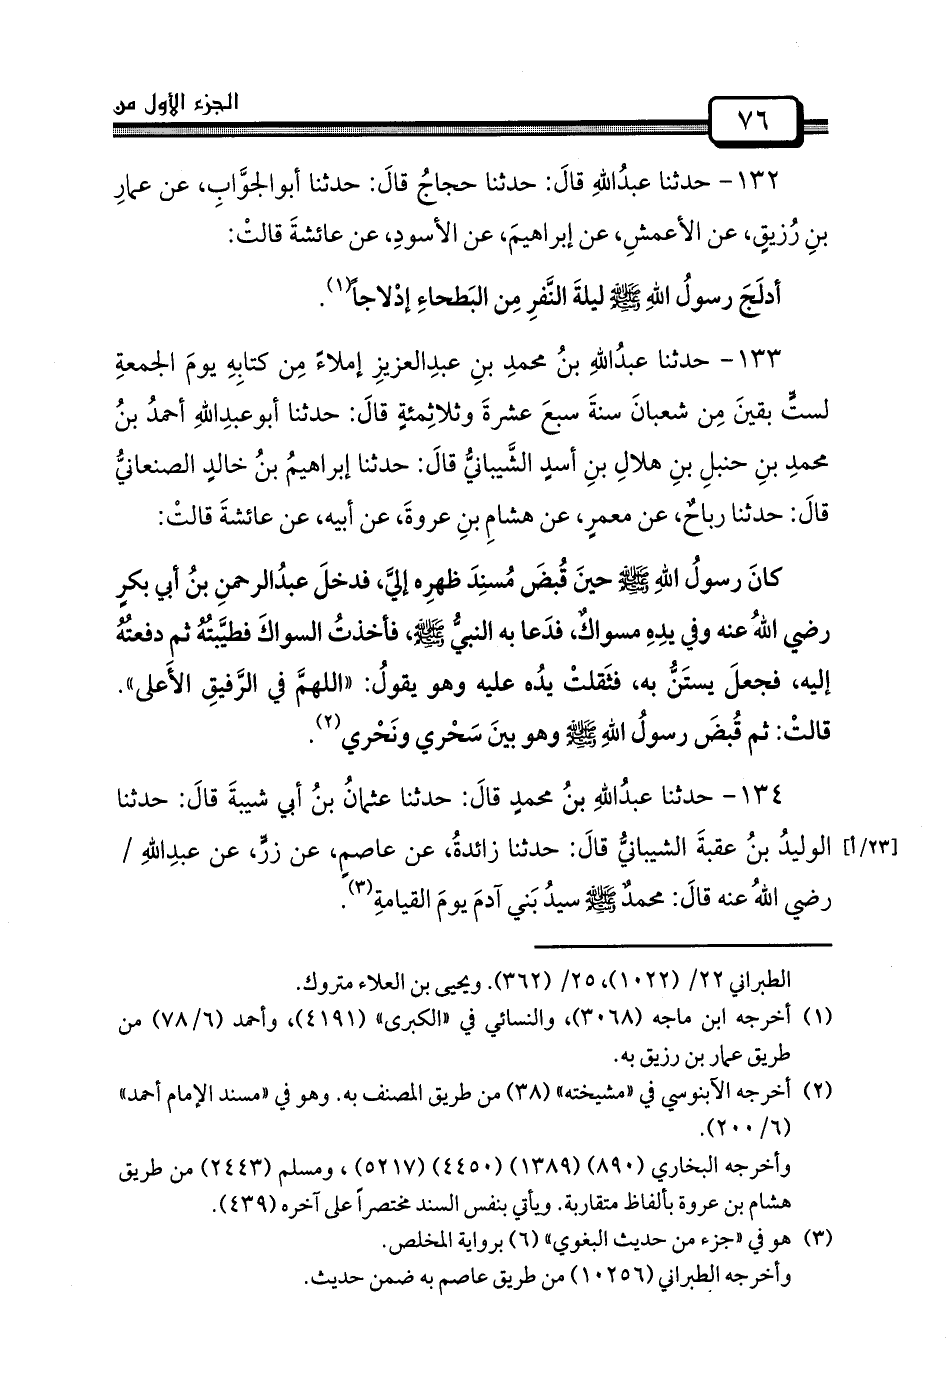 الجزء الأول من
٧٦
١٣٢- حدثنا عبدُاللهِ قالَ: حدثنا حجاجُ قالَ: حدثنا أبوالجوَّابِ، عن عمارِ
بنِ رُزيقٍ، عن الأعمشِ، عن إبراهيمَ، عن الأسودِ، عن عائشةَ قالتْ:
أدلَجَ رسولُ اللهِ ﷺ ليلةَ النَّفرِ مِن البَطحاءِ إدْلاجاً(١).
١٣٣- حدثنا عبدُاللهِ بنُ محمدِ بنِ عبدِالعزيزِ إملاءً مِن كتابِهِ يومَ الجمعةِ
لستٍّ بقينَ مِن شعبانَ سنةَ سبعَ عشرةَ وثلاثِمئةٍ قالَ: حدثنا أبوعبدِاللهِ أحمدُ بنُ
محمدِ بنِ حنبلِ بنِ هلالِ بنِ أسدٍ الشَّيبانيُّ قالَ: حدثنا إبراهيمُ بنُ خالدٍ الصنعانيُّ
قالَ: حدثنا رباحٌ، عن معمرٍ، عن هشامِ بنِ عروةَ، عن أبيه، عن عائشةَ قالتْ:
كانَ رسولُ اللهِ ﷺ حينَ قُبضَ مُسنِدَ ظهرِه إليَّ، فدخلَ عبدُالرحمنِ بنُ أبي بكرٍ
رضي اللهُ عنه وفي يدِهِ مسواكٌ، فدَعا به النبيُّ ﷺ، فأخذتُ السواكَ فطيَّبتُهُ ثم دفعتُهُ
إليه، فجعلَ يستَنُّ به، فثَقلتْ يدُه عليه وهو يقولُ: «اللهمَّ في الرَّفيقِ الأَعلى».
قالتْ: ثم قُبضَ رسولُ اللهِ ﷺ وهو بينَ سَحْري ونَحْري(٢).
١٣٤- حدثنا عبدُاللهِ بنُ محمدٍ قالَ: حدثنا عثمانُ بنُ أبي شيبةَ قالَ: حدثنا
[٢٣/أ] الوليدُ بنُ عقبةَ الشيبانيُّ قالَ: حدثنا زائدةُ، عن عاصمٍ، عن زرٍّ، عن عبدِاللهِ /
رضي اللهُ عنه قالَ: محمدٌ ﷺ سيدُ بَني آدمَ يومَ القيامةِ(٣).
الطبراني ٢٢/ (١٠٢٢)، ٢٥/ (٣٦٢). ويحيى بن العلاء متروك.
(١) أخرجه ابن ماجه (٣٠٦٨)، والنسائي في «الكبرى» (٤١٩١)، وأحمد (٧٨/٦) من
طريق عمار بن رزيق به.
(٢) أخرجه الآبنوسي في «مشيخته» (٣٨) من طريق المصنف به. وهو في «مسند الإمام أحمد»
(٢٠٠/٦).
وأخرجه البخاري (٨٩٠) (١٣٨٩) (٤٤٥٠) (٥٢١٧) ، ومسلم (٢٤٤٣) من طريق
هشام بن عروة بألفاظ متقاربة. ويأتي بنفس السند مختصراً على آخره (٤٣٩).
(٣) هو في «جزء من حديث البغوي» (٦) برواية المخلص.
وأخرجه الطبراني (١٠٢٥٦) من طريق عاصم به ضمن حديث.